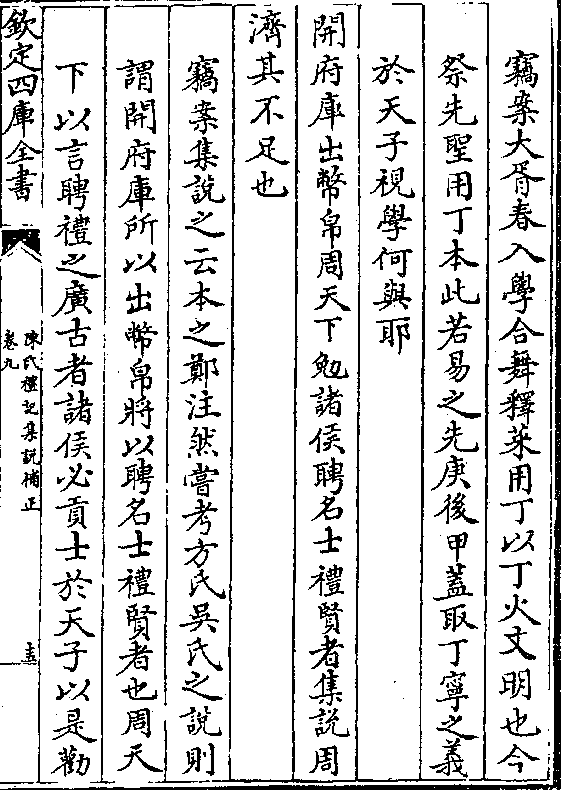 竊案大胥春入學合舞釋菜用丁以丁火文明也今
祭先聖用丁本此若易之先庚後甲蓋取丁寧之義
於天子視學何與耶
開府庫出幣帛周天下勉諸侯聘名士禮賢者集說周
濟其不足也
竊案集說之云本之鄭注然嘗考方氏吳氏之說則
謂開府庫所以出幣帛將以聘名士禮賢者也周天
下以言聘禮之廣古者諸侯必貢士於天子以是勸
欽定四庫全書
陳氏禮記集說補正
卷九